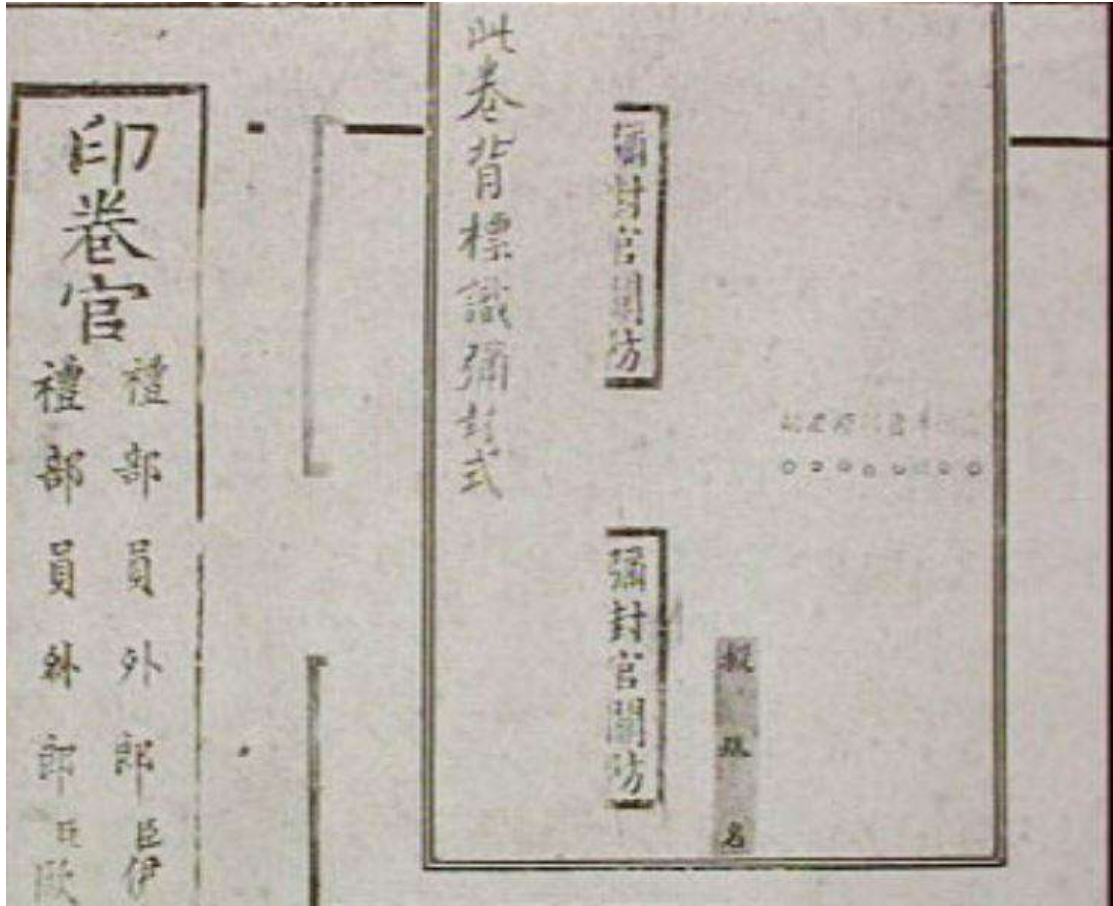 彌封官關防
彌封官關防
第
張
名
此卷背標識彌封式
印卷官
禮部員外郎臣伊
禮部員外郎臣歐